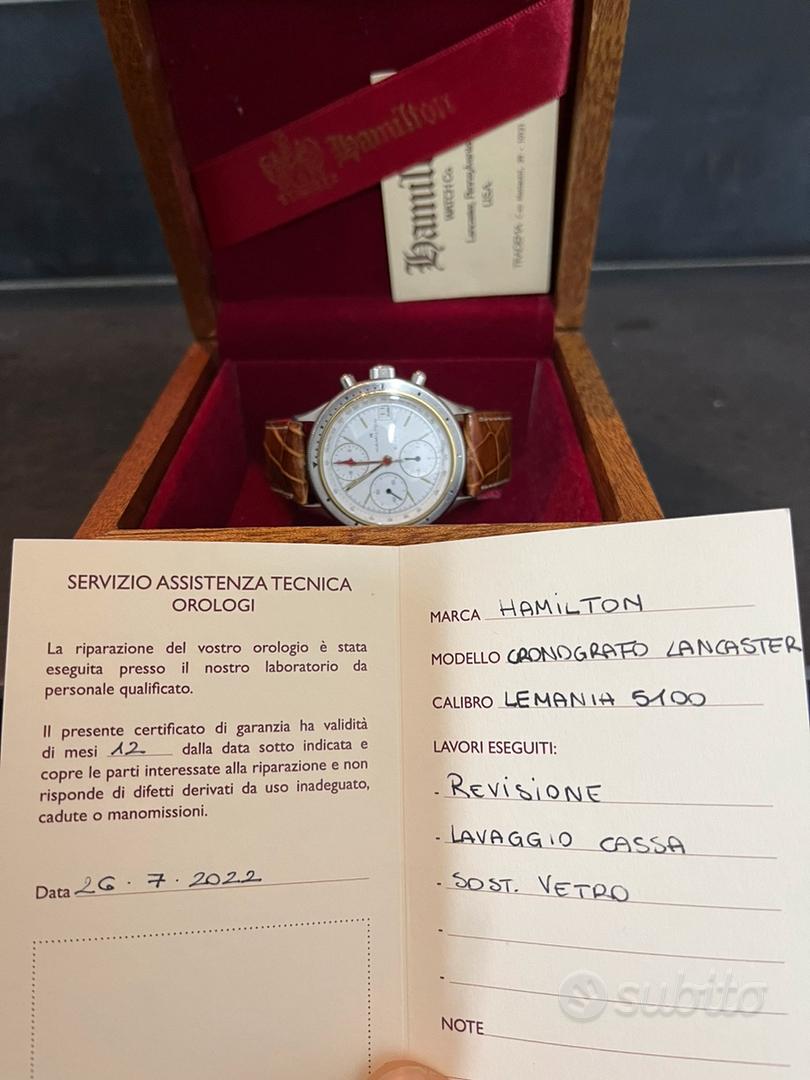 Hamilton
Hamil
WATCH Co.
Lancaster, Pennsylvania
U.S.A.
HAMILTON
SERVIZIO ASSISTENZA TECNICA
OROLOGI
La riparazione del vostro orologio è stata
eseguita presso il nostro laboratorio da
personale qualificato.
Il presente certificato di garanzia ha validità
di mesi 12 dalla data sotto indicata e
copre le parti interessate alla riparazione e non
risponde di difetti derivati da uso inadeguato,
cadute o manomissioni.
Data 26.7.2022
MARCA HAMILTON
MODELLO CRONOGRAFO LANCASTER
CALIBRO LEMANIA 5100
LAVORI ESEGUITI:
- REVISIONE
- LAVAGGIO CASSA
- SOST. VETRO
-
-
NOTE
subito